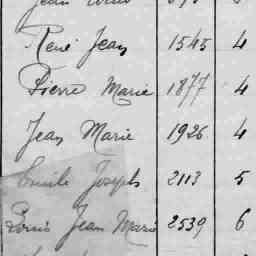 Jean
René Jean 1545 4
Pierre Marie 1877 4
Jean Marie 1926 4
Emile Joseph 2113 5
Louis Jean Marie 2539 6